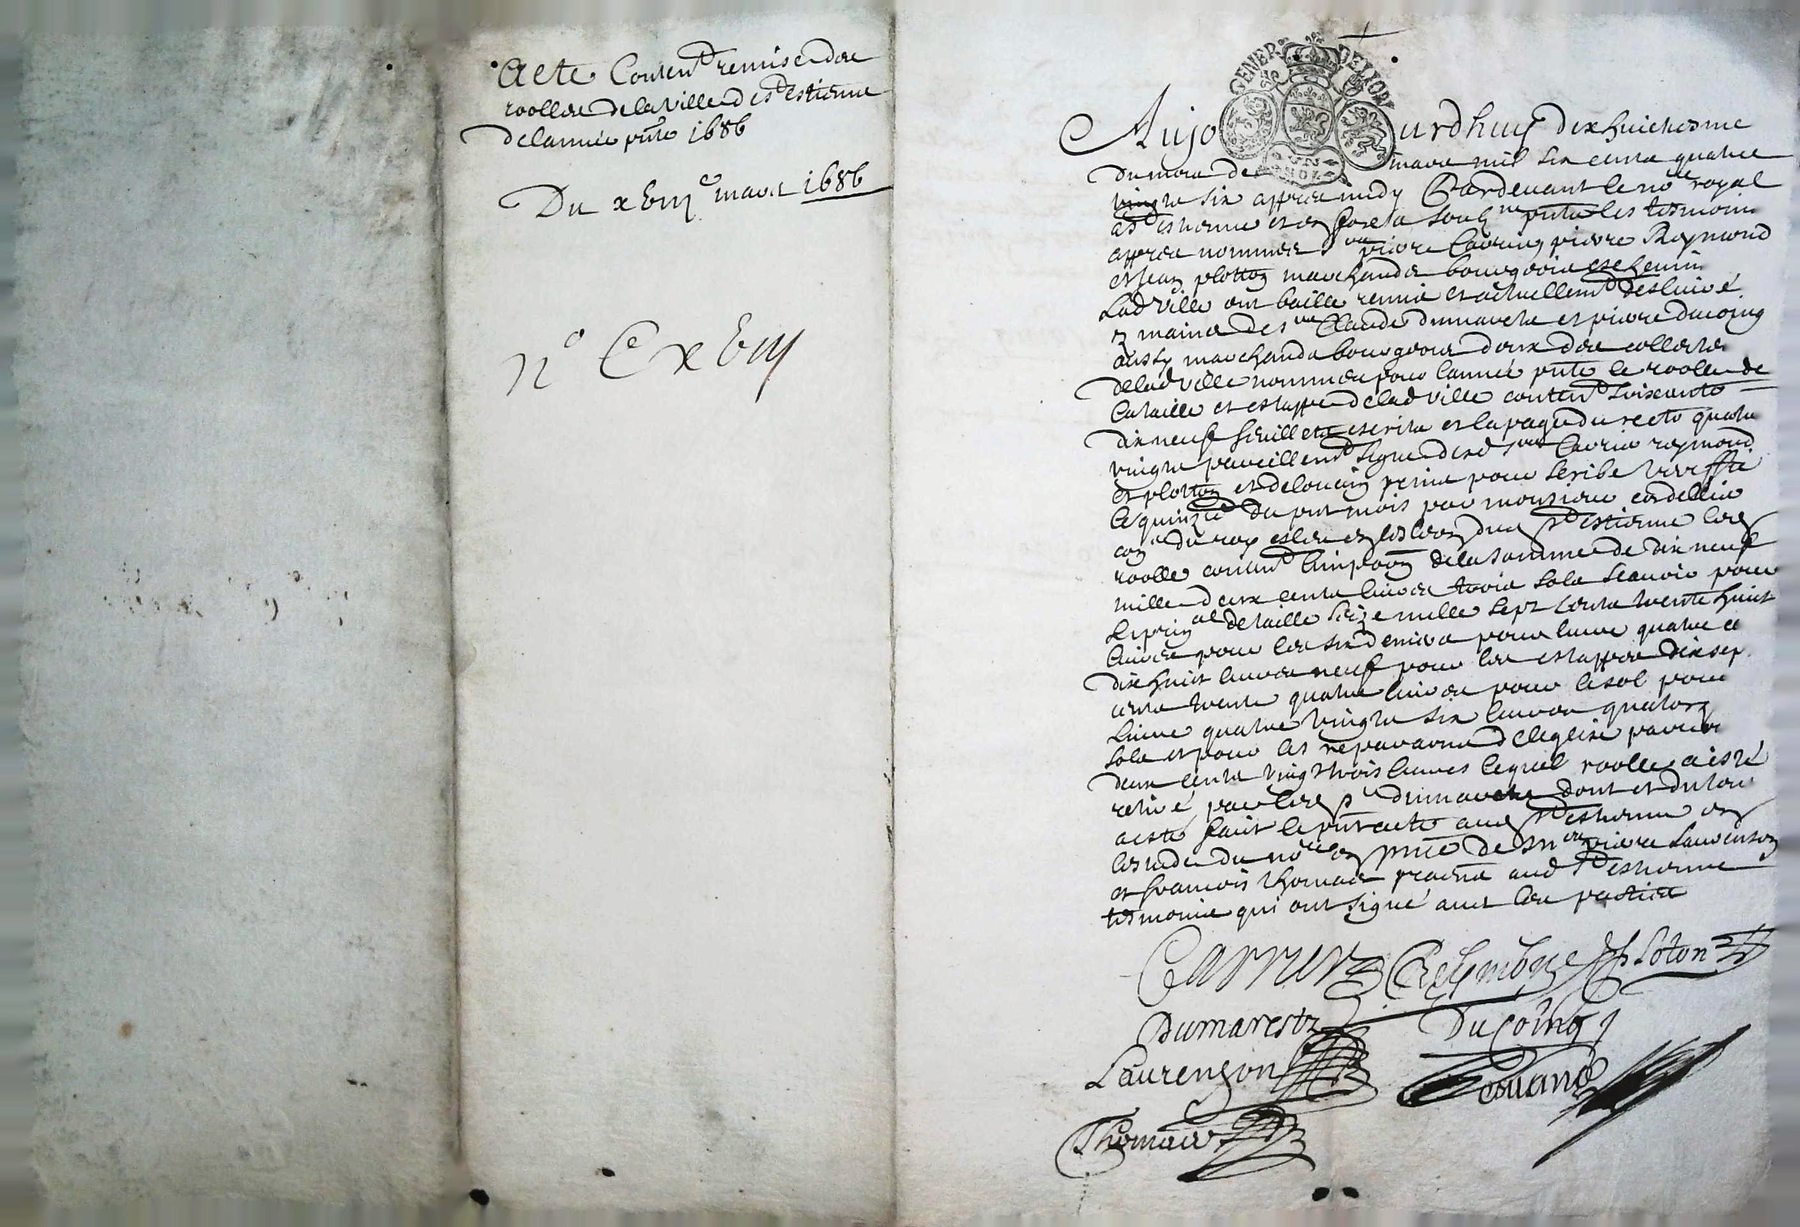 Acte Conten^t remise des
roolles de la ville de S^t estienne
de lannée pnte 1686
Du xbiij^e mars 1686
n° Cxbiij
GENER DE LYON
Aujourdhuy dixhuictiesme
du mois de mars mil six cents quatre
vingts six appres midy Pardevant le no^re royal
a S^t estienne et en pnce les tesmoins
appres nommes s^rs pierre Carrier pierre Reymond
et Jean plotton marchands bourgeois eschevins
lad ville ont baillé remis et actuellem^t deslivré
ez mains de s^rs Claude dumarets et pierre ducoing
aussy marchands bourgeois deux des collecteurs
de lad ville nommes pour lannée pnte le roolle de
la taille et estappe de lad ville conten^t soixante
dix neuf feuillets escrits et la page du recto quatre
vingts pareillem^t signé desd s^rs Carrier reymond
et plotton et de pour scribe veriffié
le quinz^e du pnt mois par monsieur cordellier
con^er du roy esleu en lelection dud S^t estienne led
roolle conten^t limpo^on de la somme de dix neuf
mille deux cents livres trois sols scavoir pour
le prin^al de taille seize mille sept cents trente huict
livres pour les six deniers pour livre quatre cents
dix huict livres neuf pour les estappes dix sept
cents trente quatre livres pour le sol pour
livre quatre vingts six livres quatorze
sols et pour les reparaons de leglise
deux cents vingt trois livres lequel roolle a esté
retiré par led s^r dumarets dont et du tout
a esté faict le pnt acte aud S^t estienne en
lestude du no^re en pnce de m^re pierre Laurenson
et francois thomas praticien aud S^t estienne
tesmoins qui ont signé avec les parties
Carrier Reymond J ploton
Dumarestz Ducoing
Laurenson
Thomas